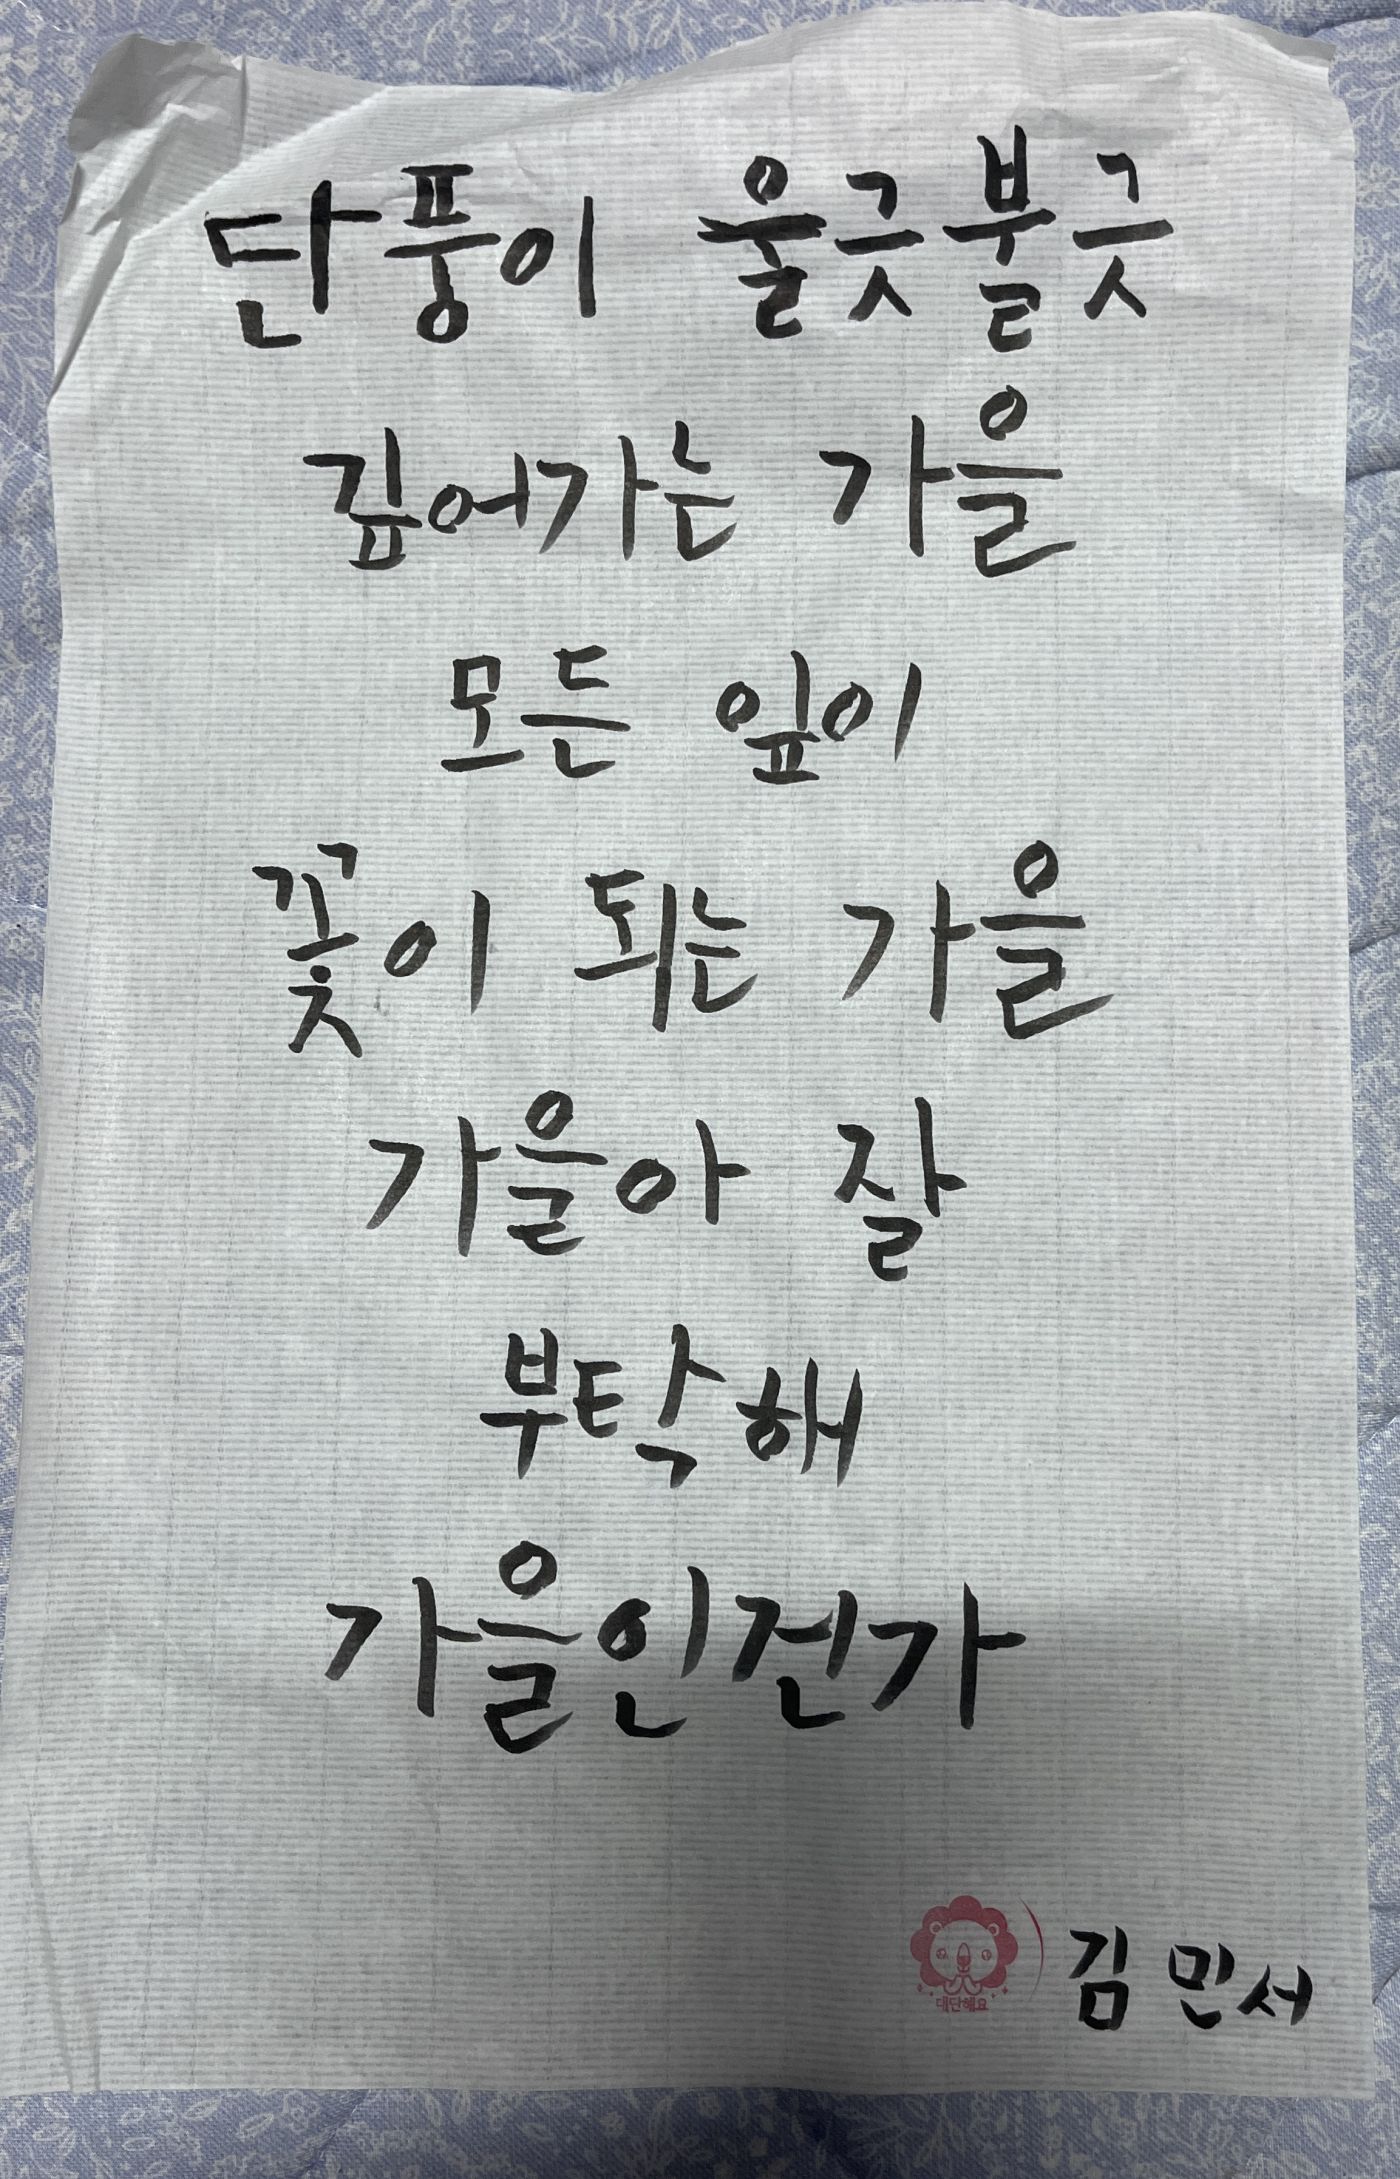 단풍이 울긋불긋
깊어가는 가을
모든 잎이
꽃이 되는 가을
가을아 잘
부탁해
가을인건가
대단해요
김민서